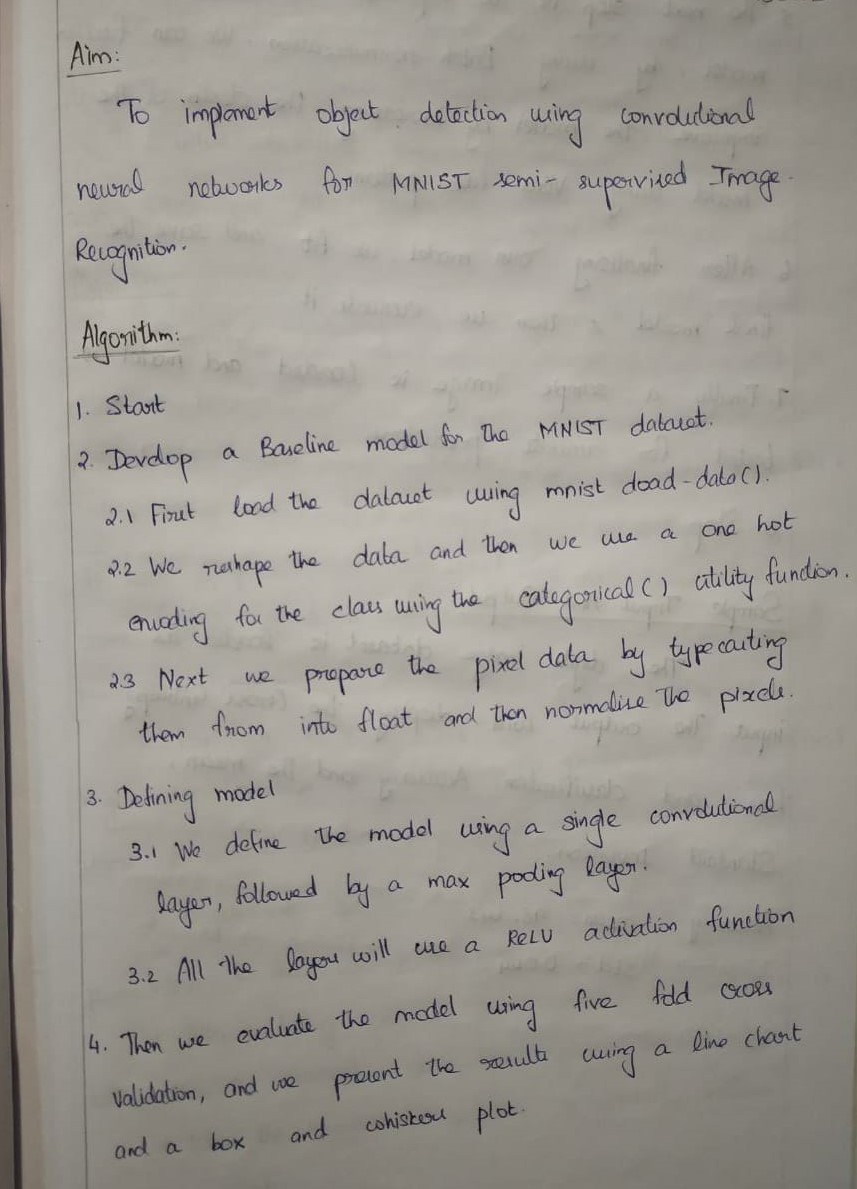 Aim:
To implement object detection using convolutional
neural networks for MNIST semi- supervised Image
Recognition.
Algorithm:
1. Start
2. Develop a Baseline model for the MNIST dataset.
2.1 First load the dataset using mnist load-data().
2.2 We reshape the data and then we use a one hot
encoding for the class using the categorical() utility function.
2.3 Next we prepare the pixel data by typecasting
them from into float and then normalise the pixels.
3. Defining model
3.1 We define the model using a single convolutional
layer, followed by a max pooling layer.
3.2 All the layers will use a ReLU activation function
4. Then we evaluate the model using five fold cross
validation, and we present the results using a line chart
and a box and whiskers plot.